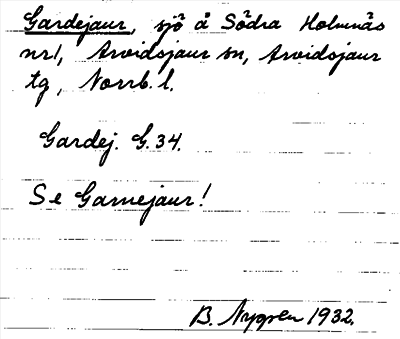 Gardejaur, sjö å Södra Holmnäs
nr1, Arvidsjaur sn, Arvidsjaur
tg, Norrb. l.
Gardej. G. 34.
Se Garnejaur!
B. Nygren 1932.